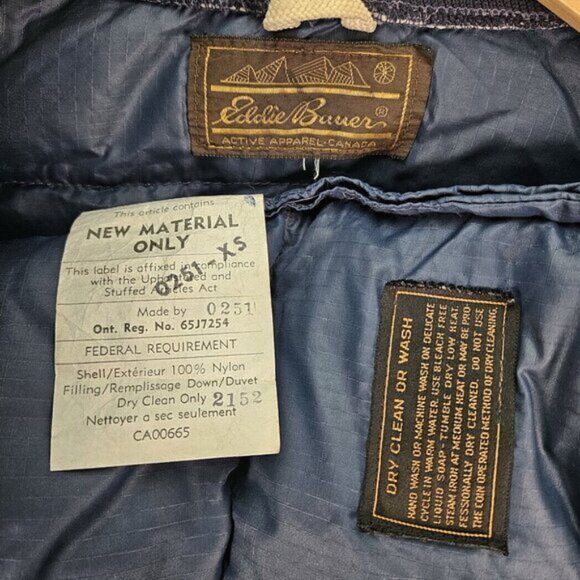 Eddie Bauer®
ACTIVE APPAREL·CANADA
This article contains
NEW MATERIAL
ONLY
0251-XS
This label is affixed in compliance
with the Upholstered and
Stuffed Articles Act
Made by 0251
Ont. Reg. No. 65J7254
FEDERAL REQUIREMENT
Shell/Extérieur 100% Nylon
Filling/Remplissage Down/Duvet
Dry Clean Only 2152
Nettoyer a sec seulement
CA00665
DRY CLEAN OR WASH
HAND WASH OR MACHINE WASH ON DELICATE
CYCLE IN WARM WATER. USE BLEACH FREE
LIQUID SOAP - TUMBLE DRY LOW HEAT.
STEAM IRON AT MEDIUM HEAT OR MAY BE PRO
FESSIONALLY DRY CLEANED. DO NOT USE
THE COIN OPERATED METHOD OF DRY CLEANING.